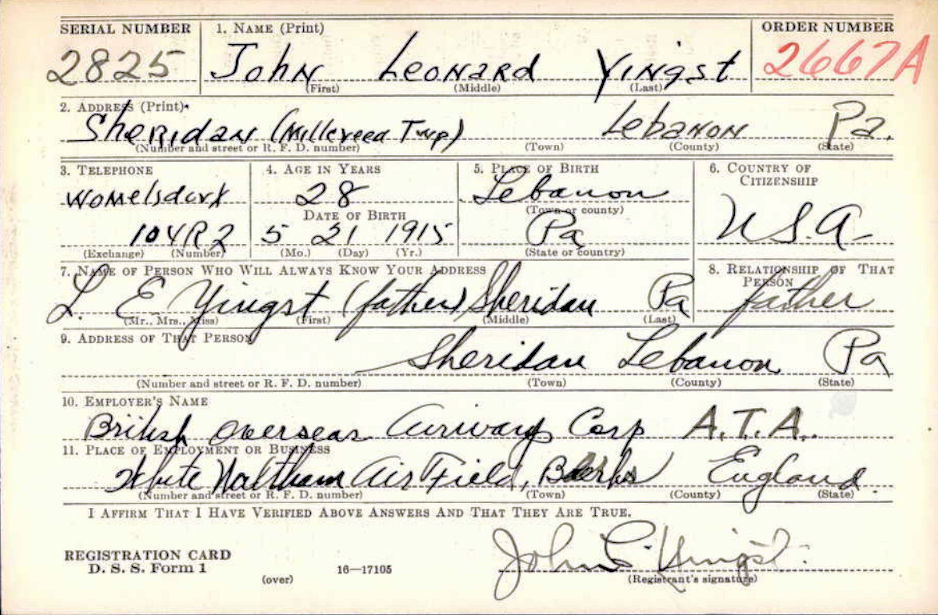 SERIAL NUMBER 1. NAME (Print) ORDER NUMBER
2825 John Leonard Yingst 2667A
(First) (Middle) (Last)
2. ADDRESS (Print)
Sheridan (Millcreed Twp) Lebanon Pa.
(Number and street or R. F. D. number) (Town) (County) (State)
3. TELEPHONE 4. AGE IN YEARS 5. PLACE OF BIRTH 6. COUNTRY OF CITIZENSHIP
Womelsdorf 28 Lebanon
DATE OF BIRTH (Town or county)
104R2 5 21 1915 Pa U.S.A
(Exchange) (Number) (Mo.) (Day) (Yr.) (State or country)
7. NAME OF PERSON WHO WILL ALWAYS KNOW YOUR ADDRESS 8. RELATIONSHIP OF THAT PERSON
L. E Yingst (father) Sheridan Pa father
(Mr., Mrs., Miss) (First) (Middle) (Last)
9. ADDRESS OF THAT PERSON
Sheridan Lebanon Pa
(Number and street or R. F. D. number) (Town) (County) (State)
10. EMPLOYER'S NAME
British Overseas Airways Corp A.T.A.
11. PLACE OF EMPLOYMENT OR BUSINESS
White Waltham Air Field, Berks England.
(Number and street or R. F. D. number) (Town) (County) (State)
I AFFIRM THAT I HAVE VERIFIED ABOVE ANSWERS AND THAT THEY ARE TRUE.
REGISTRATION CARD
D. S. S. Form 1 (over) 16—17105
John L. Yingst.
(Registrant's signature)